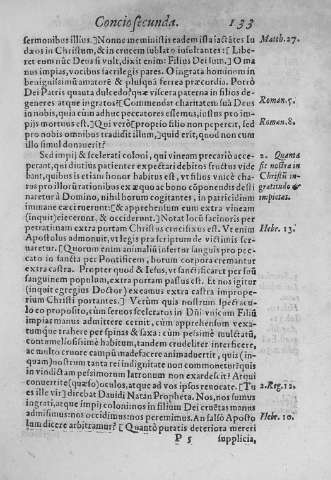 Concio secunda. 133
sermonibus illius.] Nonne meministis eadem ista iactātes Iu
dæos in Christum, & in crucem sublato insultantes: [Libe-
ret eum nūc Deus si vult, dixit enim: Filius Dei sum.] O ma
nus impias, vocibus sacrilegis pares. O ingrata hominum in
benignissimū amatorē & plusquā ferrea præcordia. Porrò
Dei Patris quanta dulcedo? quæ viscera paterna in filios de-
generes atque ingratos? [Commendat charitatem suā Deus
in nobis, quia cùm adhuc peccatores essemus, iustus pro im-
pijs mortuus est.] Qui verò [proprio filio non pepercit, sed
pro nobis omnibus tradidit illum,] quid erit, quod non cum
illo simul donauerit?
Sed impij & scelerati coloni, qui vineam precariò acce-
perant, qui diutius patienter expectari debitos fructus vide
bant, quibus is etiam honor habitus est, vt filius vnicè cha-
rus pro illorū rationibus ex æquo ac bono cōponendis desti
naretur à Domino, nihil horum cogitantes, in patricidium
immane exarserunt: [& apprehensum eum extra vineam
(inquit) eiecerunt, & occiderunt.] Notat locū facinoris per
petrati: nam extra portam Christus crucifixus est. Vt enim
Apostolus admonuit, vt legis præscriptum de victimis ser-
naretur. [Quorum enim animaliū infertur sanguis pro pec-
cato in sancta per Pontificem, horum corpora cremantur
extra castra. Propter quod & Iesus, vt sanctificaret per suū
sanguinem populum, extra portam passus est. Et nos igitur
(inquit egregius Doctor) exeamus extra castra imprope-
rium Christi portantes.] Verùm quis nostrum spectacu-
lo eo proposito, cùm seruos sceleratos in Dñi vnicum Filiū
impias manus admittere cernit, cùm apprehensum vexa-
tumque trahere per spinas & saxa: cùm pessimè mulctatū,
contumeliosissimè habitum, tandem crudeliter interficere,
ac multo cruore campū madefacere animaduertit, quis (in-
quam) nostrum tanta rei indignitate non commouetur? quis
in vindictam pessimorum latronum non exardescit? At qui
conuertite (quæso) oculos, atque ad vos ipsos reuocate. [Tu
es ille vir] dicebat Dauidi Natan Propheta. Nos, nos sumus
ingrati, atque impij coloni: nos in filium Dei cruētas manus
admisimus: nos occidimus: nos peremimus. An falsò Aposto
lum dicere arbitramur? [Quantò putatis deteriora mereri
P 5 supplicia,
Matth. 27.
Roman. 5.
Roman. 8.
2. Quanta
sit nostra in
Christū in-
gratitudo &
impietas.
Hebr. 13.
2. Reg. 12.
Hebr. 10.